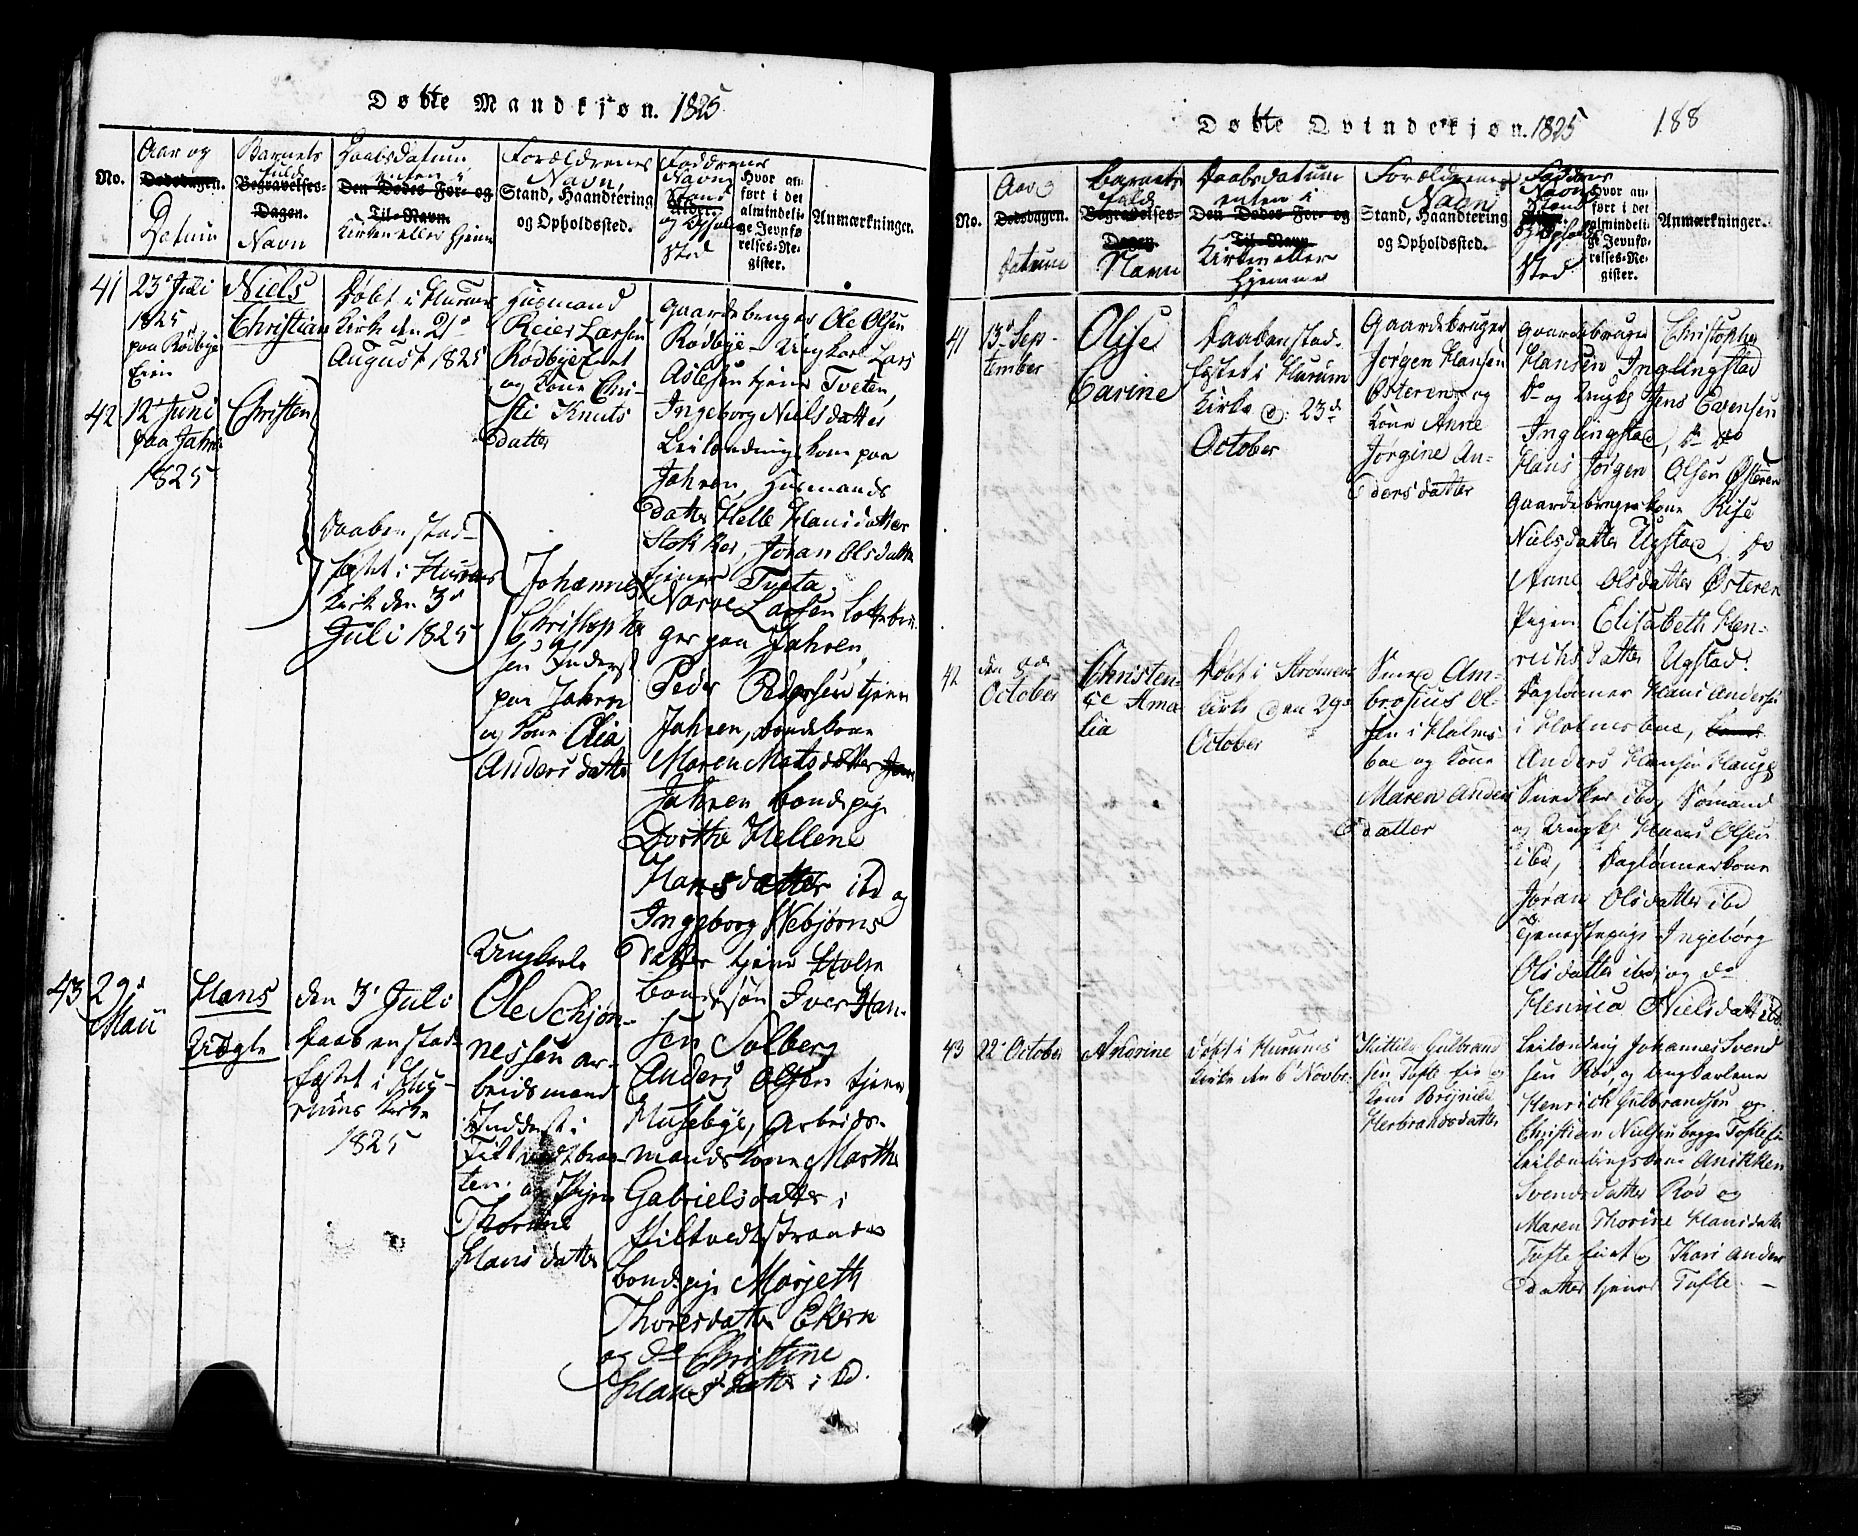 Døbte Mandkjøn. 1825
No.
Aar og
Dødsdagen.
Datum
Barnets
fulde
Begravelses-
Dagen.
Navn
Daabsdatum
enten i
Den Dødes For- og
Til-Navn.
Kirken eller hjemme
Forældrenes
Navn,
Stand, Haandtering
og Opholdssted.
Faddrenes
Navn
Stand
og Opholds
sted
Hvor an-
ført i det
almindeli-
ge Jevnfø-
relses-Re-
gister.
Anmærkninger.
41
23de Juli
1825
paa Rødbye
Eien
Niels
Christian
Døbt i Hurums
Kirke den 21de
August 1825
Husmand
Reier Larsen
Rødbye
og Kone Chri-
sti Knuts
datter
Gaardebruger Ole Olsen
Rødbye Ungkarl Lars
Aslesen tjener Tveten,
Ingeborg Nielsdatter
Leilændings kone paa
Jahren, Husmands
datter Helle Hansdatter
Stokker, Joran Olsdatter
tjener Tveta
42
12te Juni
paa Jahren
1825
Christen
Daaben stad-
fæstet i Hurums
Kirke den 3de
Juli 1825
Johannes
Christopher
sen Inderst
paa Jahren
og Kone Elia
Anders datter
Narve Larsen Lottebru-
ger paa Jahren,
Peder Pedersen tjener
Jahren, bondekone
Maren Matsdatter
Jahren bondepige
Dorthe Hellene
Hansdatter ibd og
Ingeborg Nebjørns
datter tjener Holm
43
29de
Maii
Hans
Uægte
den 3de Juli
Daaben stad-
fæstet i Hu-
rums Kirke
1825
Ungkarl
Ole Schjøn-
nessen ar-
beidsmand
Indderst i
Filtvedtbraa-
ten. og Pigen
Thorine
Hans datter
bondesøn Iver Han-
sen Solberg
Anders Olsen tjener
Husebye, Arbeids-
mands kone Marthe
Gabrielsdatter i
Filtvedtstranden
bondepige Marjeth
Thoresdatter Ekern
og do Christine
Hansdatter ibd.
Døbte Qvindekjøn. 1825
188
No.
Aar og
Dødsdagen.
Datum
Barnets
fulde
Begravelses-
Dagen.
Navn
Daabsdatum
enten i
Den Dødes For- og
Til-Navn.
Kirken eller
hjemme
Forældrenes
Navn
Stand, Haandtering
og Opholdssted.
Faddernes
Navn
Stand
og Opholds
sted
Hvor an-
ført i det
almindeli-
ge Jevnfø-
relses-Re-
gister.
Anmærkninger.
41
13de Sep-
tember
Olise
Carine
Daaben stad-
fæstet i Hurum
Kirke d. 23de
October
Gaardebruger
Jørgen Hansen
Østeren og
Kone Anne
Jørgine An-
dersdatter
Gaardebruger Christopher
Hansen Inglingstad
do og Ungk: Jens Evensen
Inglingstad, do do
Hans Jørgen Olsen Østeren
Gaardebrugerkone Kise
Nielsdatter Ugstad, do
Anne Olsdatter Østeren
Pigen Elisabeth Hen-
richs datter Ugstad.
42
October
Christen-
ce Ama-
lia
Døbt i Strømms
Kirke den 29de
October
Smed Am-
brosius Ol-
sen i Holms-
boe og Kone
Maren Anders
datter
Daglønner Hans Andersen
i Holmsboe,
Anders Hansen Hauge
Snedker ibd, Sømand
og Ungk: Hans Olsen
ibd, Daglønnerkone
Joran Olsdatter ibd
Tjenestepige Ingebørg
Olsdatter ibd, og do
Henrica Nielsdatter ibd.
43
22de October
Andrine
Døbt i Hurums
Kirke den 6te Novbr.
Kittil Gulbrand
sen Tofte Eie og
Kone Brynild
Herbrandsdatter
Leilænding Johannes Svend
sen Rød, og Ungkarlene
Henrich Gulbrandsen og
Christian Nielsen begge Tofte Eie
Leilændingskone Anikken
Svends datter Rød og
Maren Thorine Hansdatter
Tofte Eiet og Kari Anders
datter tjener Tofte. —